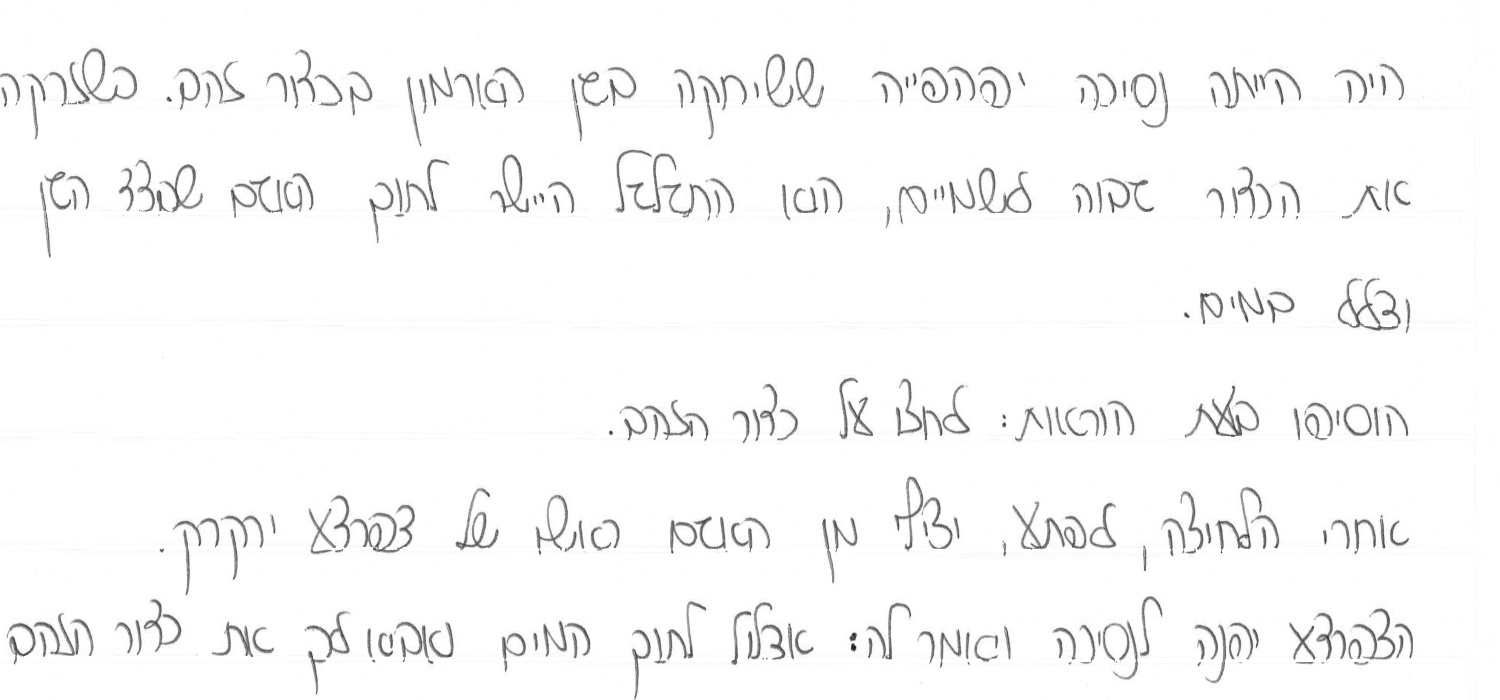 היה הייתה נסיכה יפהפייה ששיחקה בגן הארמון בכדור זהב. כשזרקה
את הכדור גבוה לשמיים, הוא התגלגל היישר לתוך האגם שבצד הגן
וצלל במים.
הוסיפו כעת הוראות: לחצו על כדור הזהב.
אחרי הלחיצה, לפתע, יציף מן האגם ראשו של צפרדע ירקרק.
הצפרדע יפנה לנסיכה ואומר לה: אצלול לתוך המים ואביא לך את כדור הזהב